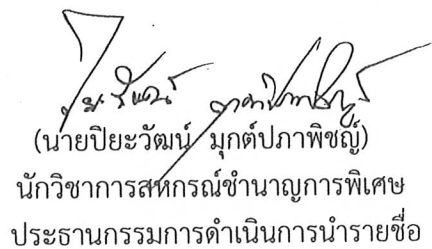 (นายปิยะวัฒน์ มุกต์ปภาพิชญ์)
นักวิชาการสหกรณ์ชำนาญการพิเศษ
ประธานกรรมการดำเนินการนำรายชื่อ